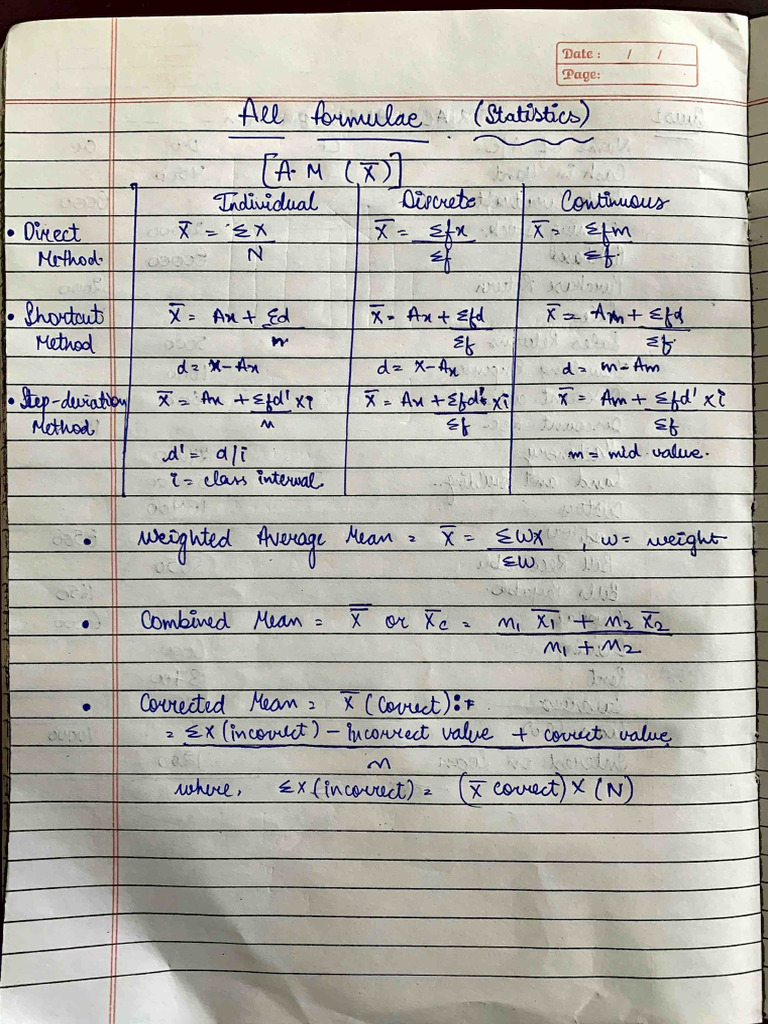 Date : / /
Page:
All formulae (Statistics)
[A.M (X̄)]
Individual Discrete Continuous
• Direct Method.
X̄ = ΣX / N
X̄ = Σfx / Σf
X̄ = Σfm / Σf
• Shortcut Method
X̄ = Ax + Σd / n
d = x - Ax
X̄ = Ax + Σfd / Σf
d = x - Ax
X̄ = Am + Σfd / Σf
d = m - Am
• Step-deviation Method
X̄ = Ax + Σfd' / n × i
d' = d/i
i = class interval.
X̄ = Ax + Σfd' / Σf × i
X̄ = Am + Σfd' / Σf × i
m = mid value.
• Weighted Average Mean = X̄ = ΣWX / ΣW , w = weight
• Combined Mean = X̿ or X̄c = n₁ X̄₁ + n₂ X̄₂ / n₁ + n₂
• Corrected Mean = X̄ (Correct) :-
= ΣX (incorrect) - Incorrect value + correct value / n
where, ΣX (incorrect) = (X̄ correct) × (N)